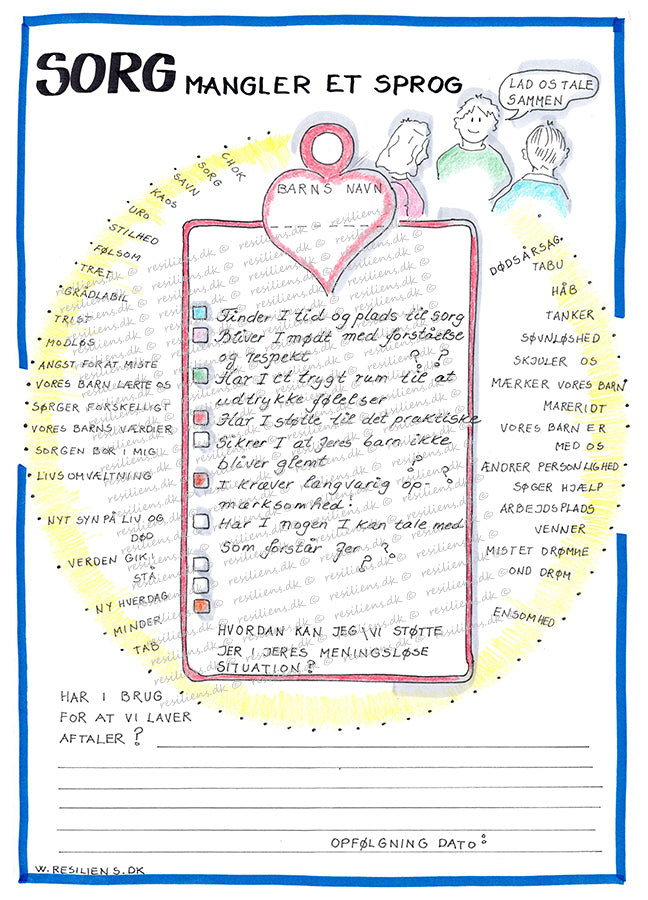 SORG MANGLER ET SPROG
LAD OS TALE
SAMMEN
BARNS NAVN
CHOK
SORG
SAVN
KAOS
URO
STILHED
FØLSOM
TRÆT
GRÅDLABIL
TRIST
MODLØS
ANGST FOR AT MISTE
VORES BARN LÆRTE OS
SØRGER FORSKELLIGT
VORES BARNS VÆRDIER
SORGEN BOR I MIG
LIVSOMVÆLTNING
NYT SYN PÅ LIV OG
DØD
VERDEN GIK I
STÅ
NY HVERDAG
MINDER
TAB
Finder I tid og plads til sorg
Bliver I mødt med forståelse
og respekt ? ?
Har I et trygt rum til at
udtrykke følelser
Har I støtte til det praktiske
Sikrer I at jeres barn ikke
bliver glemt ? ?
I kræver langvarig op-
mærksomhed!
Har I nogen I kan tale med
som forstår jer ?
?
HVORDAN KAN JEG\VI STØTTE
JER I JERES MENINGSLØSE
SITUATION?
DØDSÅRSAG
TABU
HÅB
TANKER
SØVNLØSHED
SKJULER OS
MÆRKER VORES BARN
MARERIDT
VORES BARN ER
MED OS
ÆNDRER PERSONLIGHED
SØGER HJÆLP
ARBEJDSPLADS
VENNER
MISTET DRØMME
OND DRØM
ENSOMHED
HAR I BRUG
FOR AT VI LAVER
AFTALER ?
OPFØLGNING DATO:
W.RESILIENS.DK
resiliens.dk ©